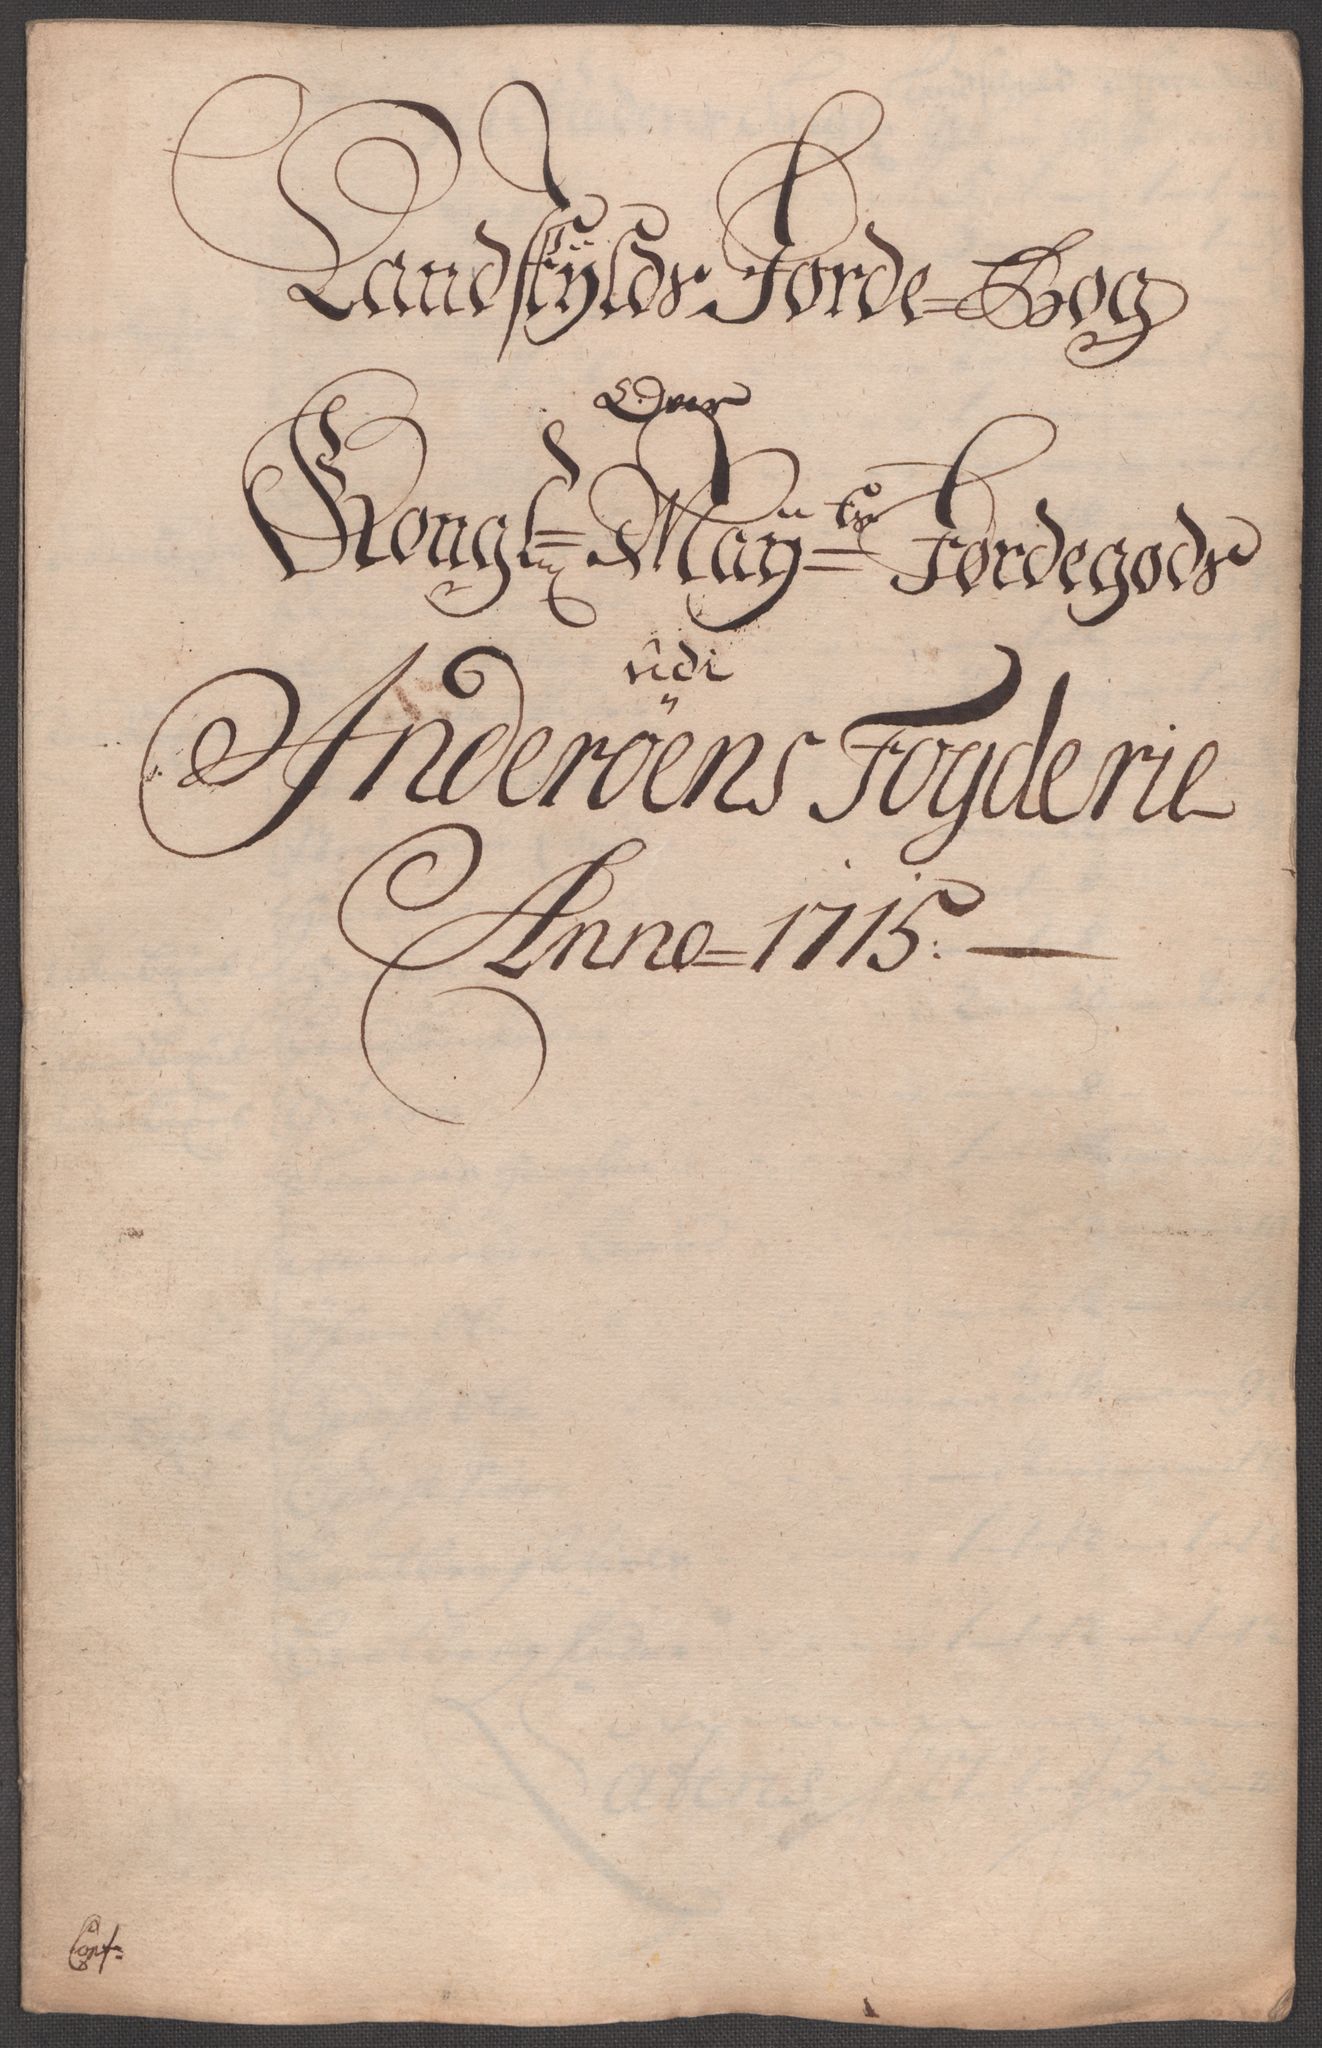 Landskylds Jorde=Bog
Over
Kongl= May=ts Jordegods
udi
Inderöens Fogderie
Anno=1715.